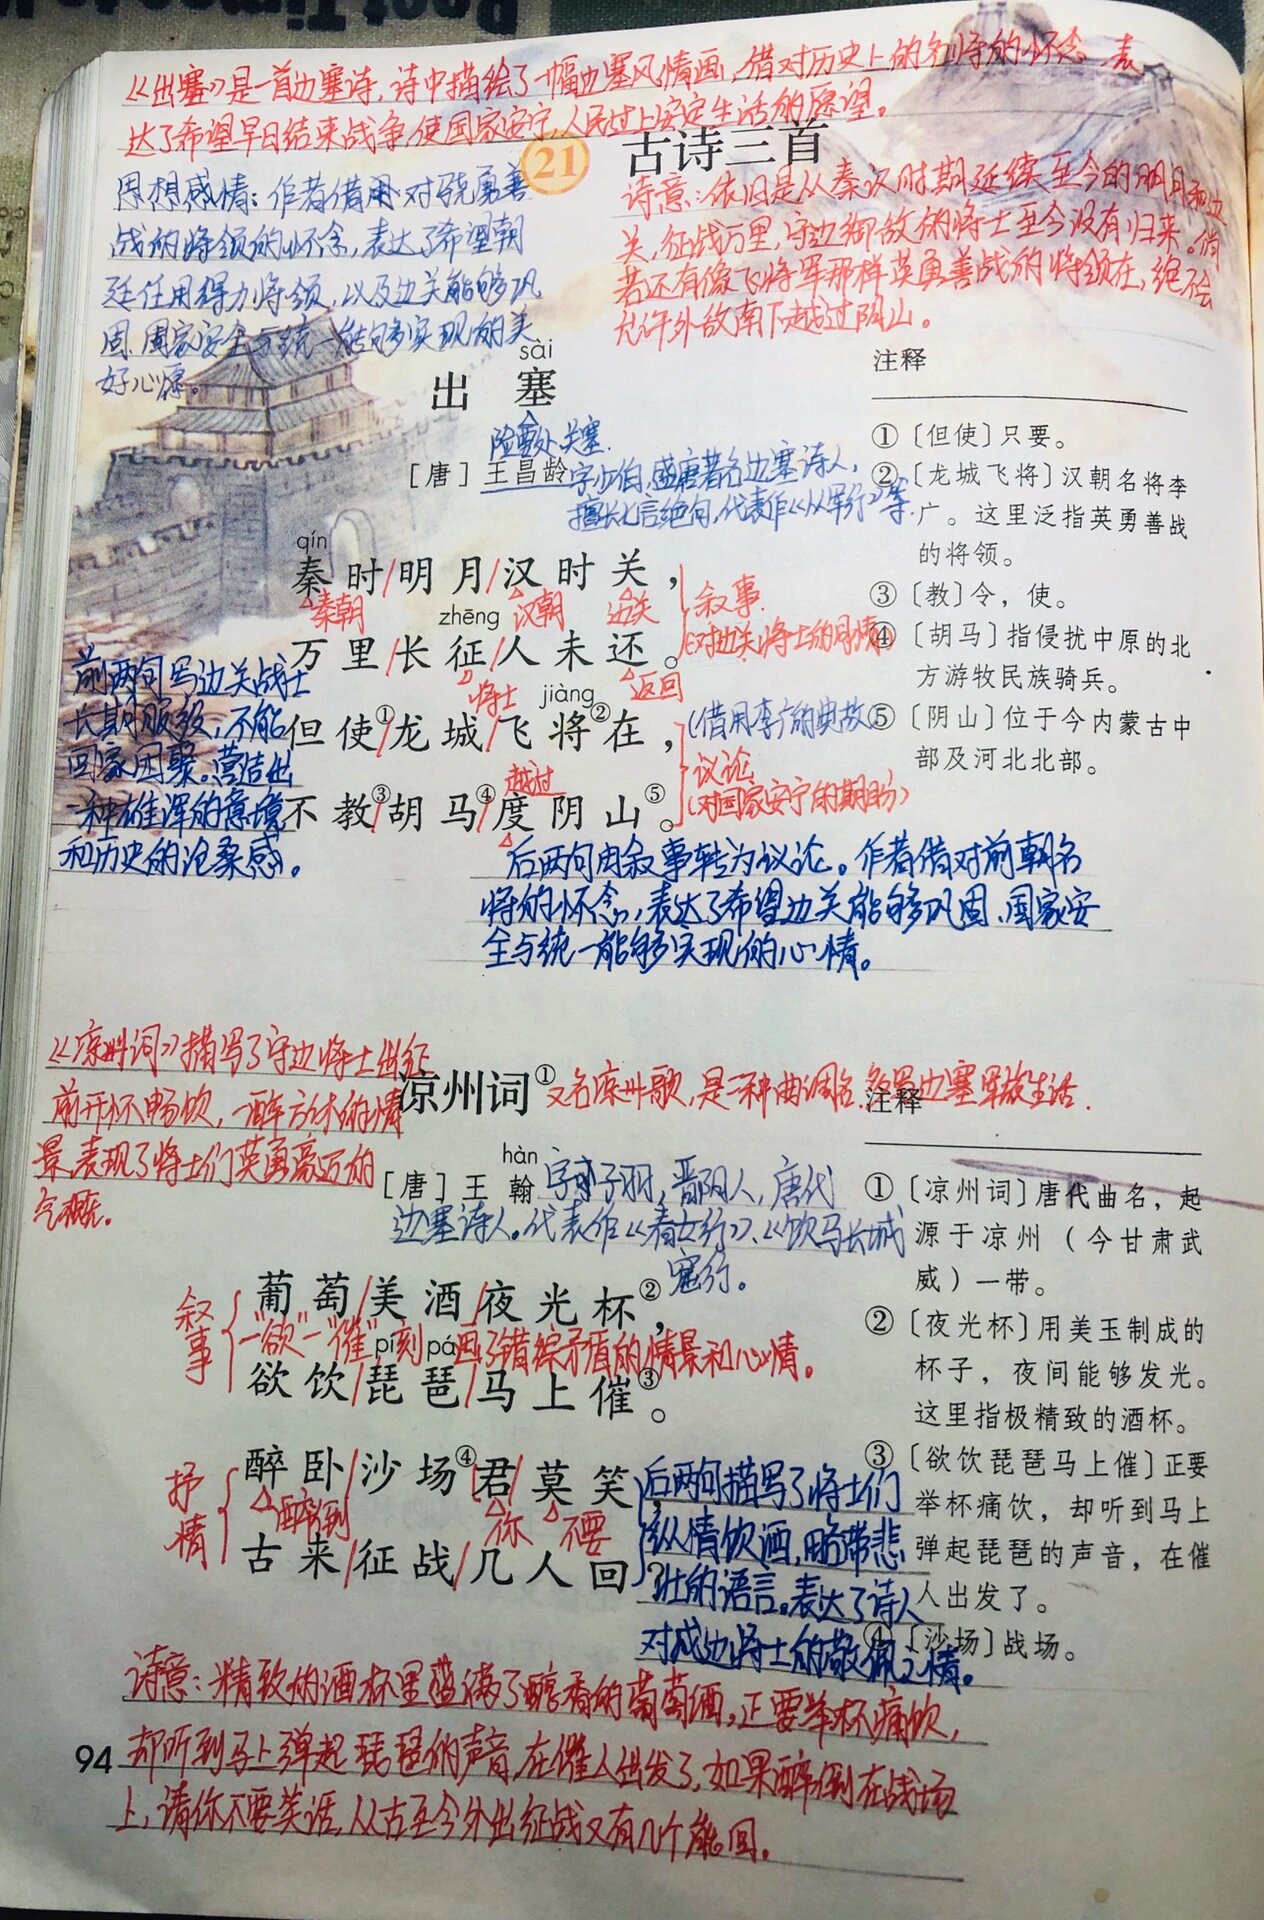 Post Times
《出塞》是一首边塞诗，诗中描绘了一幅边塞风情画，借对历史上的名将的怀念，表
达了希望早日结束战争，使国家安宁，人民过上安定生活的愿望。
21 古诗三首
思想感情：作者借用对骁勇善
战的将领的怀念，表达了希望朝
廷任用得力将领，以及边关能够巩
固、国家安全与统一能够实现的美
好心愿。
诗意：依旧是从秦汉时期延续至今的明月和边
关，征战万里，守边御敌的将士至今没有归来。倘
若还有像飞将军那样英勇善战的将领在，绝不会
允许外敌南下越过阴山。
sài
出 塞
险要处、关塞.
[唐]王昌龄
字少伯，盛唐著名边塞诗人，
擅长七言绝句，代表作《从军行》等.
qín
秦时/明月/汉时关，
秦朝 汉朝 边关
zhēng
万里/长征/人未还。
将士 返回
叙事.
(对边关将士的同情)
jiàng
但使①/龙城/飞将②在，
越过
不教③/胡马④/度阴山⑤。
(借用李广的典故)
议论
(对国家安宁的期盼)
前两句写边关战士
长期服役，不能
回家团聚。营造出
一种雄浑的意境
和历史的沧桑感。
后两句由叙事转为议论。作者借对前朝名
将的怀念，表达了希望边关能够巩固、国家安
全与统一能够实现的心情。
注释
①〔但使〕只要。
②〔龙城飞将〕汉朝名将李
广。这里泛指英勇善战
的将领。
③〔教〕令，使。
④〔胡马〕指侵扰中原的北
方游牧民族骑兵。
⑤〔阴山〕位于今内蒙古中
部及河北北部。
《凉州词》描写了守边将士出征
前开怀畅饮，一醉方休的情
景，表现了将士们英勇豪迈的
气概。
凉州词①
又名凉州歌，是一种曲调名.多写边塞军旅生活.
hàn
[唐]王 翰
字子羽，晋阳人，唐代
边塞诗人。代表作《春女行》、《饮马长城
窟行。
叙事
葡萄/美酒/夜光杯②，
“一欲”一“催”刻画了错综矛盾的情景和心情。
pí pá
欲饮/琵琶/马上催③。
抒情
醉卧/沙场④君/莫笑，
醉倒 你 不要
古来/征战/几人回？
后两句描写了将士们
纵情饮酒，略带悲
壮的语言。表达了诗人
对戍边将士的敬佩之情。
注释
①〔凉州词〕唐代曲名，起
源于凉州（今甘肃武
威）一带。
②〔夜光杯〕用美玉制成的
杯子，夜间能够发光。
这里指极精致的酒杯。
③〔欲饮琵琶马上催〕正要
举杯痛饮，却听到马上
弹起琵琶的声音，在催
人出发了。
④〔沙场〕战场。
诗意：精致的酒杯里盛满了醇香的葡萄酒，正要举杯痛饮，
却听到马上弹起琵琶的声音，在催人出发了，如果醉倒在战场
上，请你不要笑话，从古至今外出征战又有几个能回。
94